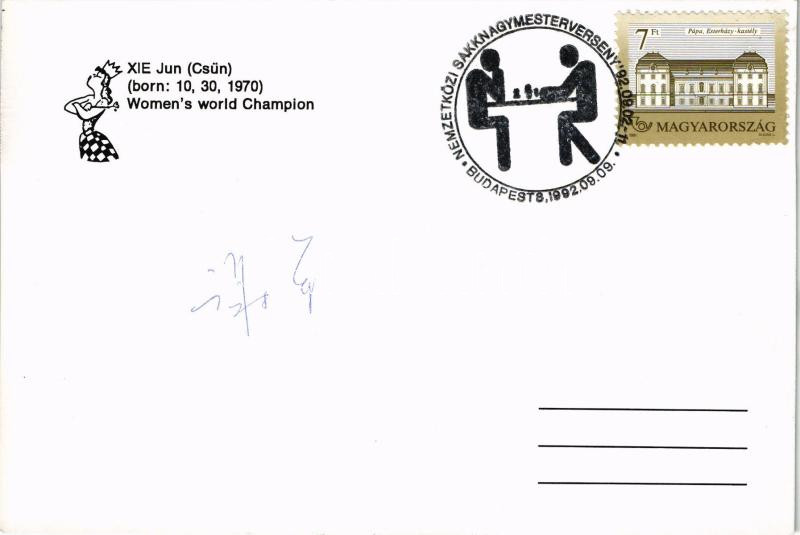 XIE Jun (Csün)
(born: 10, 30, 1970)
Women's world Champion
• NEMZETKÖZI SAKKNAGYMESTERVERSENY '92.09.02-11. •
BUDAPEST 5, 1992.09.09.
7 Ft
Pápa, Esterházy-kastély
MAGYARORSZÁG
谢军